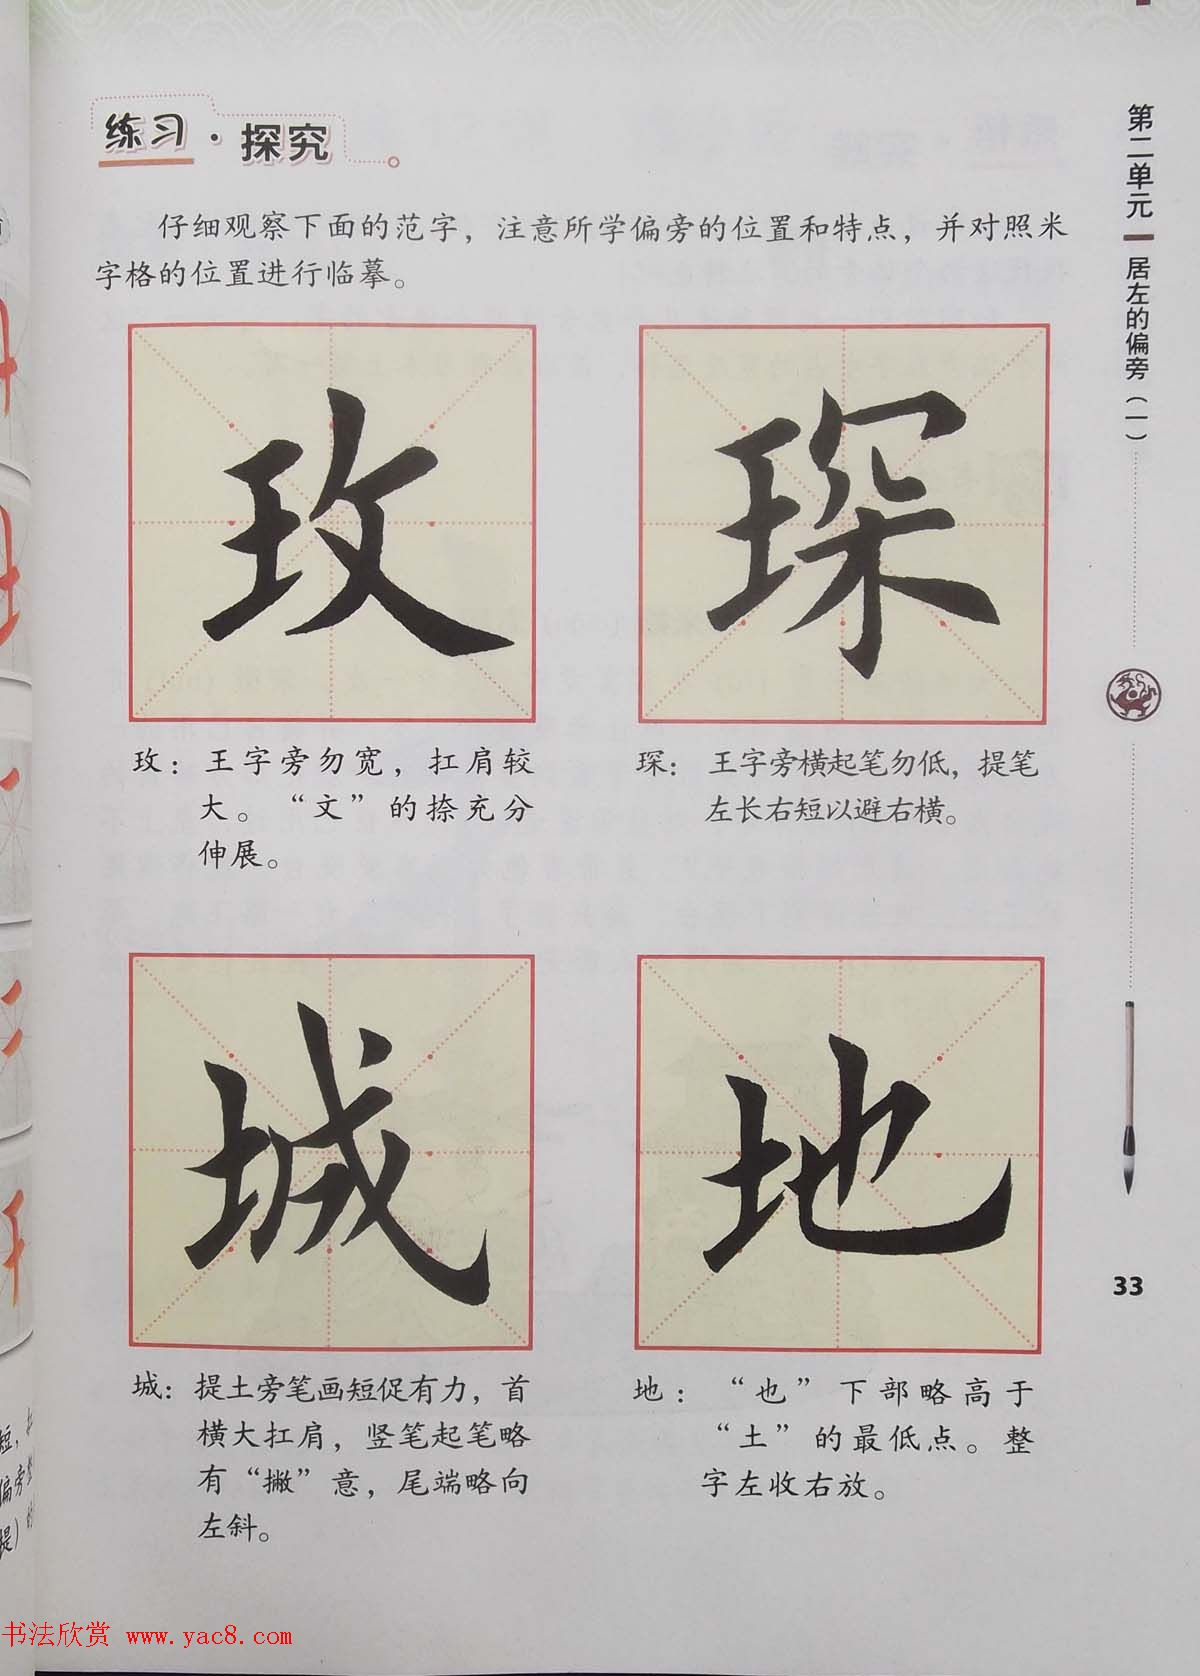 练习·探究
仔细观察下面的范字，注意所学偏旁的位置和特点，并对照米
字格的位置进行临摹。
玫
琛
玫：王字旁勿宽，扛肩较
大。“文”的捺充分
伸展。
琛：王字旁横起笔勿低，提笔
左长右短以避右横。
城
地
城：提土旁笔画短促有力，首
横大扛肩，竖笔起笔略
有“撇”意，尾端略向
左斜。
地：“也”下部略高于
“土”的最低点。整
字左收右放。
第二单元
居左的偏旁（一）
33
短，
偏旁
提）
书法欣赏 www.yac8.com